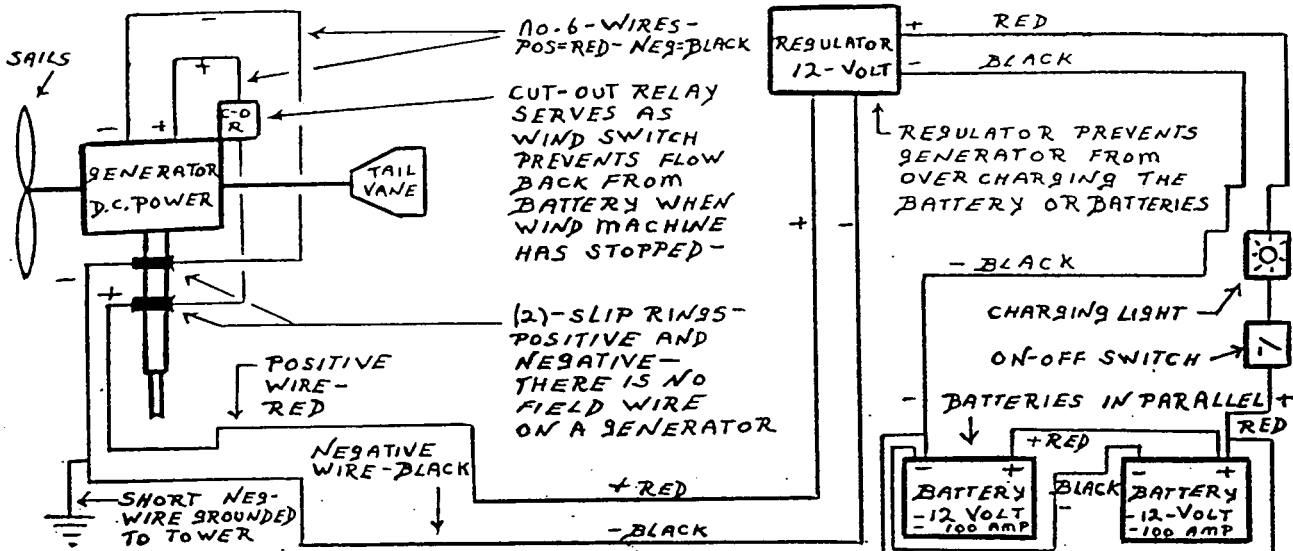 SAILS
-
+
-
+
C-O
R
GENERATOR
D.C. POWER
TAIL
VANE
NO. 6-WIRES-
POS=RED-NEG=BLACK
CUT-OUT RELAY
SERVES AS
WIND SWITCH
PREVENTS FLOW
BACK FROM
BATTERY WHEN
WIND MACHINE
HAS STOPPED-
(2)-SLIP RINGS-
POSITIVE AND
NEGATIVE-
THERE IS NO
FIELD WIRE
ON A GENERATOR
-
+
POSITIVE
WIRE-
RED
NEGATIVE
WIRE-BLACK
SHORT NEG-
WIRE GROUNDED
TO TOWER
+ RED
-BLACK
REGULATOR
12-VOLT
+ RED
- BLACK
+
-
REGULATOR PREVENTS
GENERATOR FROM
OVER CHARGING THE
BATTERY OR BATTERIES
- BLACK
CHARGING LIGHT
ON-OFF SWITCH
- BATTERIES IN PARALLEL +
RED
+RED
- +
BATTERY
-12 VOLT
-100 AMP
BLACK
-
- +
BATTERY
-12-VOLT
-100 AMP